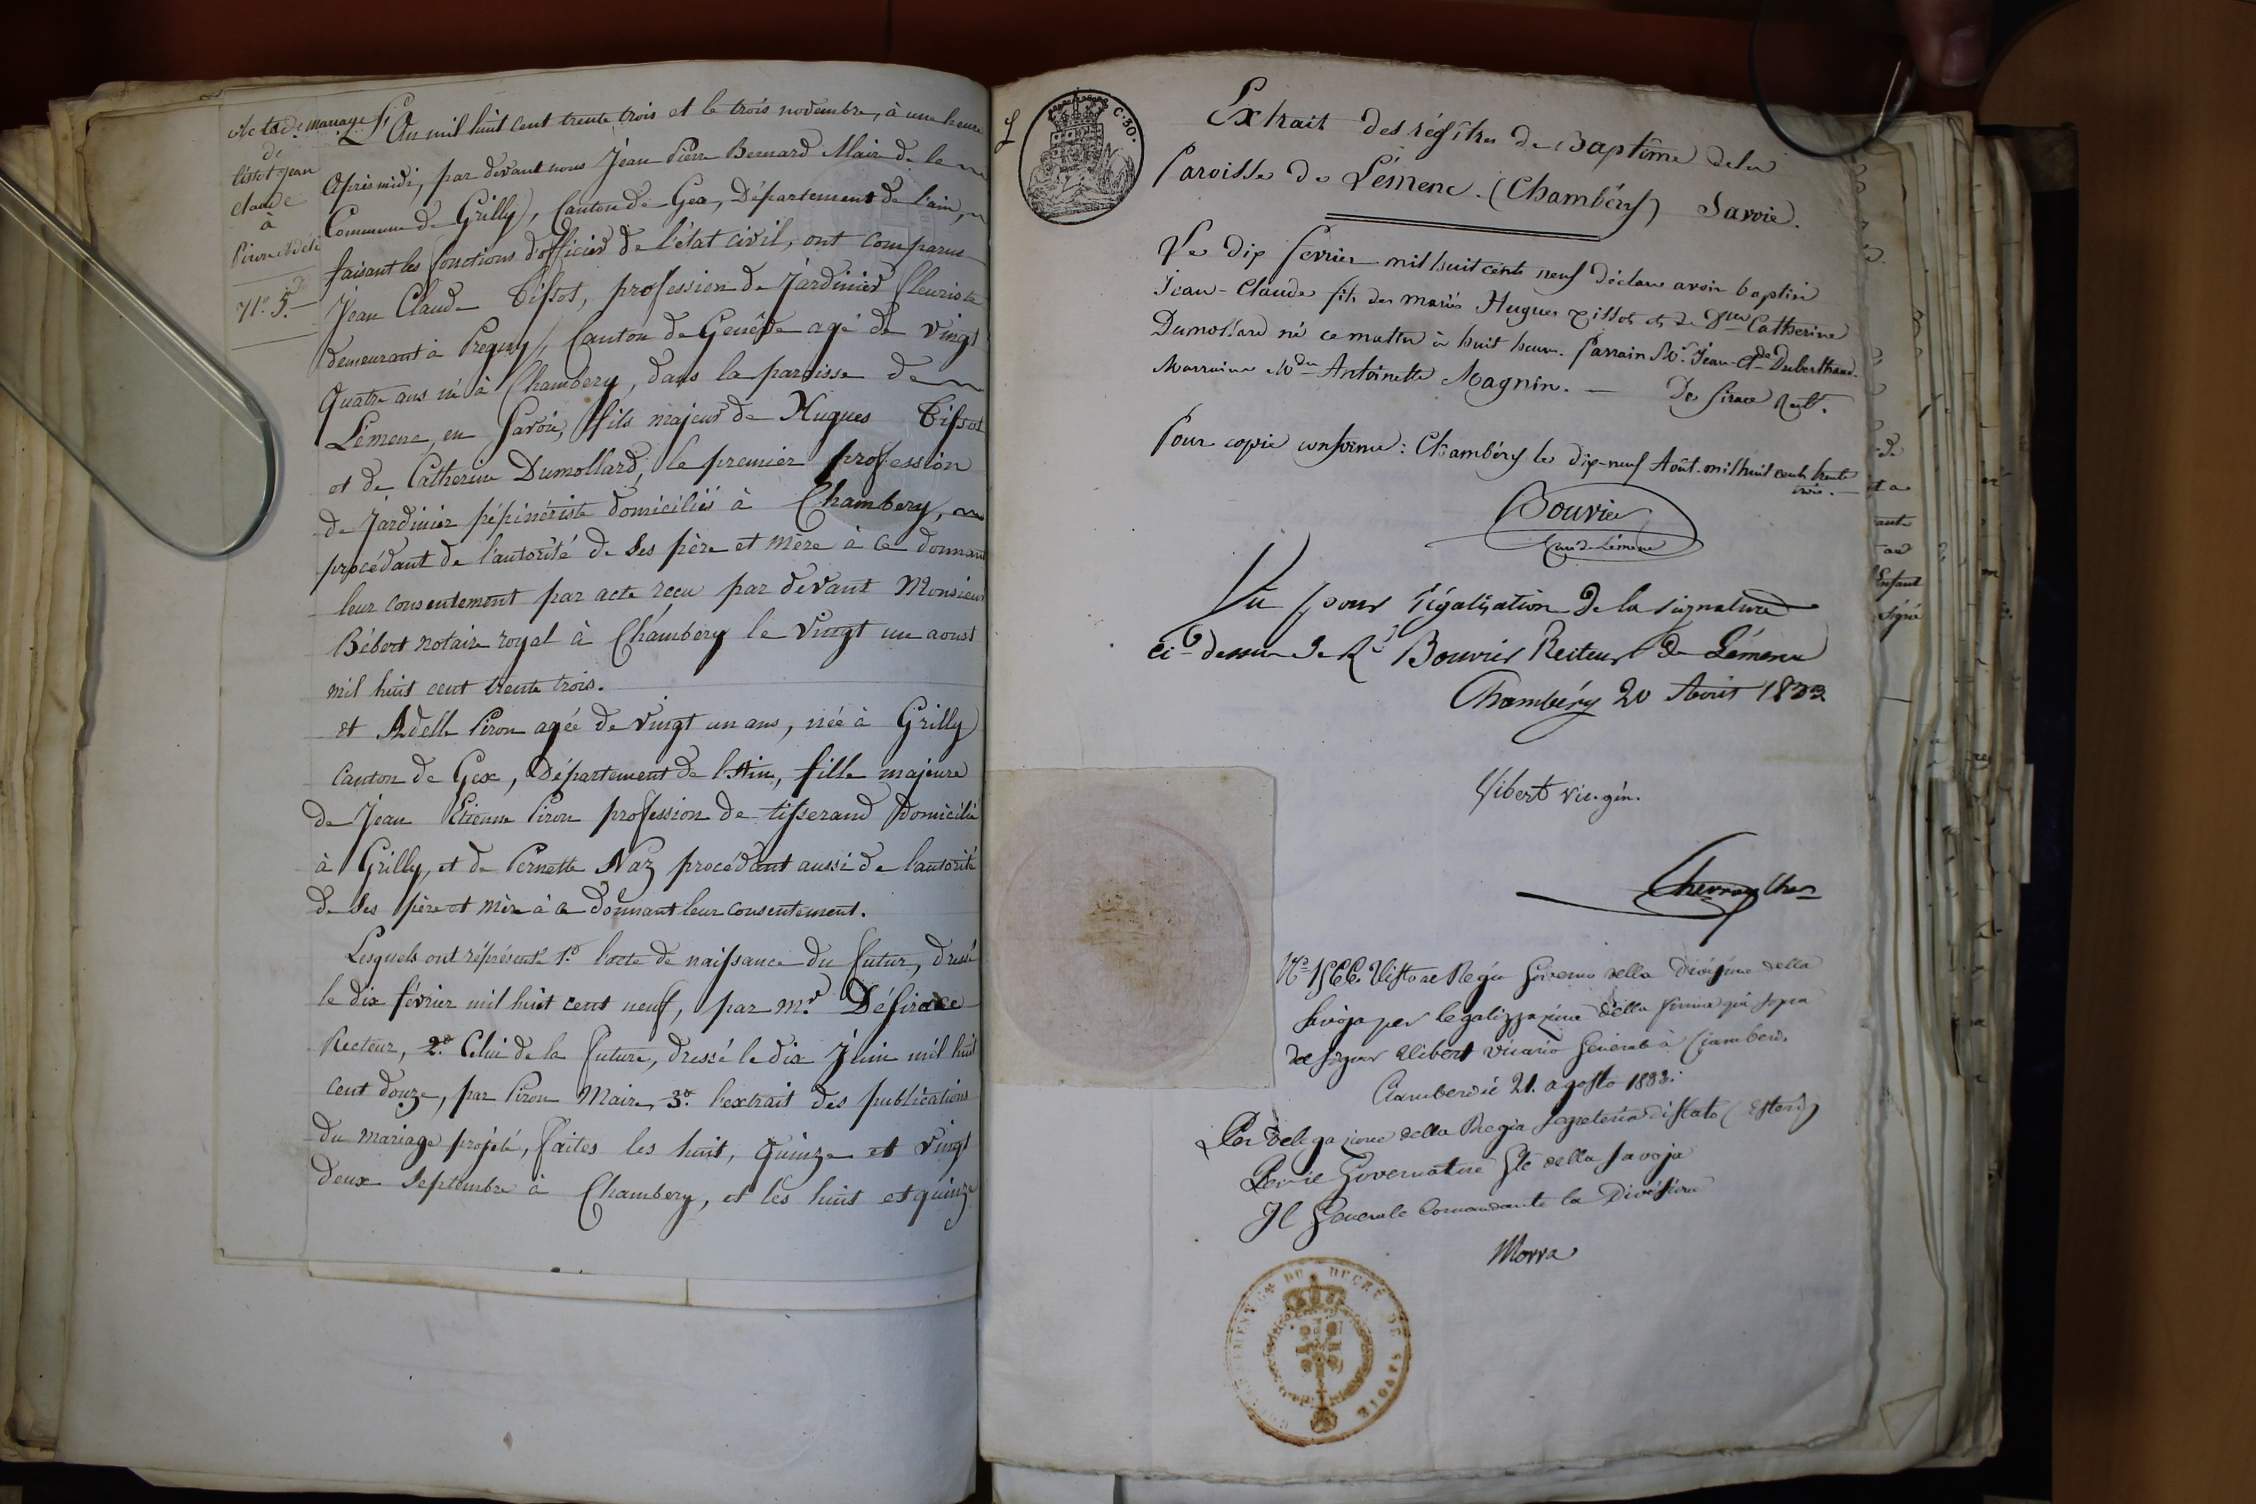 Acte de mariage
de
Tissot Jean
Claude
à
Piron Adèle
N.º 5.
L'An mil huit cent trente trois et le trois novembre, à une heure
après midi, par devant nous Jean Pierre Bernard Maire de la
Commune de Grilly, Canton de Gex, Département de l'ain,
faisant les fonctions d'officier de l'état civil, ont comparus
Jean Claude Tissot, profession de Jardinier fleuriste
demeurant à Pregny, Canton de Genève agé de vingt
quatre ans né à Chambery, dans la paroisse de
Lémenc, en Savoie, fils majeur de Hugues Tissot
et de Catherine Dumollard, le premier profession
de Jardinier pépinériste domiciliés à Chambery,
procédant de l'autorité de ses père et mère à ce donnant
leur consentement par acte reçu par devant Monsieur
Bébert notaire royal à Chambery le vingt un aoust
mil huit cent trente trois.
et Adelle Piron agée de vingt un ans, née à Grilly
Canton de Gex, Département de l'Ain, fille majeure
de Jean Etienne Piron profession de tisserand domicilié
à Grilly, et de Pernette Naz procédant aussi de l'autorité
de ses père et mère à ce donnant leur consentement.
Lesquels ont réprésenté 1.º l'acte de naissance du futur, dressé
le dix février mil huit cent neuf, par m.r Désirace
Recteur, 2.º Celui de la future, dressé le dix Juin mil huit
cent douze, par Piron Maire, 3.º l'extrait des publications
du mariage projeté, faites les huit, quinze et vingt
deux septembre à Chambery, et les huit et quinze
C. 30.
Extrait des régîtres de Baptême de la
Paroisse de Lémenc. (Chambéry) Savoie.
Le dix fevrier mil huit cent neuf déclare avoir baptisé
Jean-Claude fils des mariés Hugues Tissot et de Dme Catherine
Dumollard né ce matin à huit heures. Parrain Sr. Jean-Cde Duberthand.
Marraine Mde Antoinette Magnin. — De Sirace Rect.
Pour copie conforme: Chambéry le dix-neuf Août mil huit cent trente
trois.
Bouvier
Curé de Lémenc
Vu pour légalisation de la signature
ci-dessus de Rd Bouvier Recteur de Lémenc
Chambéry 20 Août 1833
Vibert vic. gén.
N.º Visto al Regio Governo della Divisione della
Savoja per legalizzazione della firma qui sopra
del signor Vibert Vicario Generale à Ciamberì.
Ciamberì il 21. agosto 1833.
Per delegazione della Regia Segreteria di Stato (Esteri)
Per il Governatore Gle della Savoja
Il Generale Comandante la Divisione
Morra
DU DUCHÉ DE SAVOIE